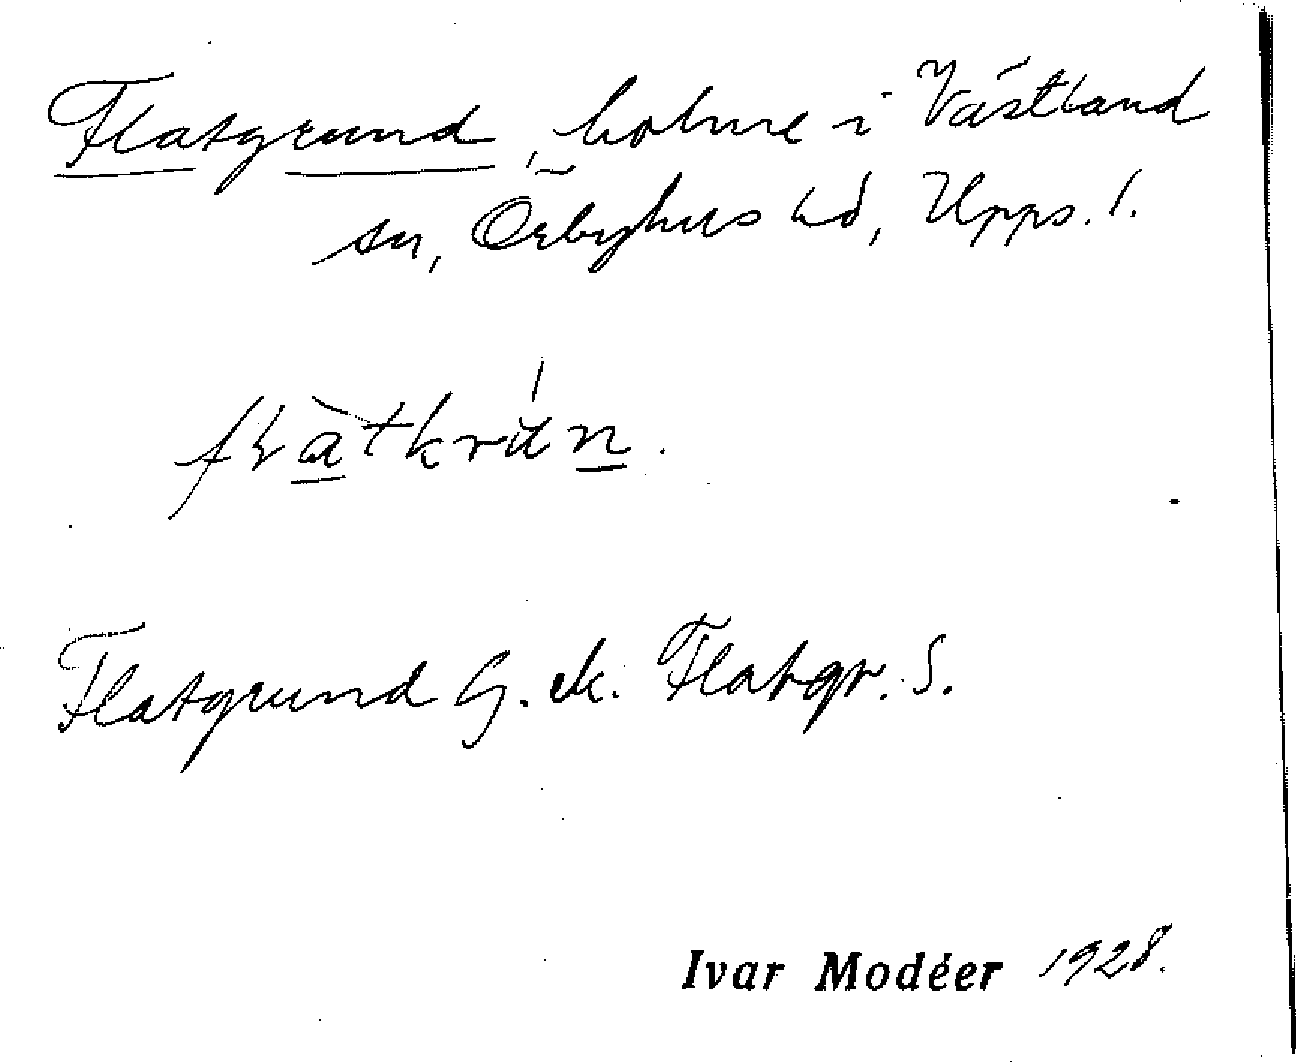 Flatgrund, holme i Västland
sn, Örbyhus hd, Upps. l.
Flatgrund G. ek. Flatgr. S.
Ivar Modéer 1928.